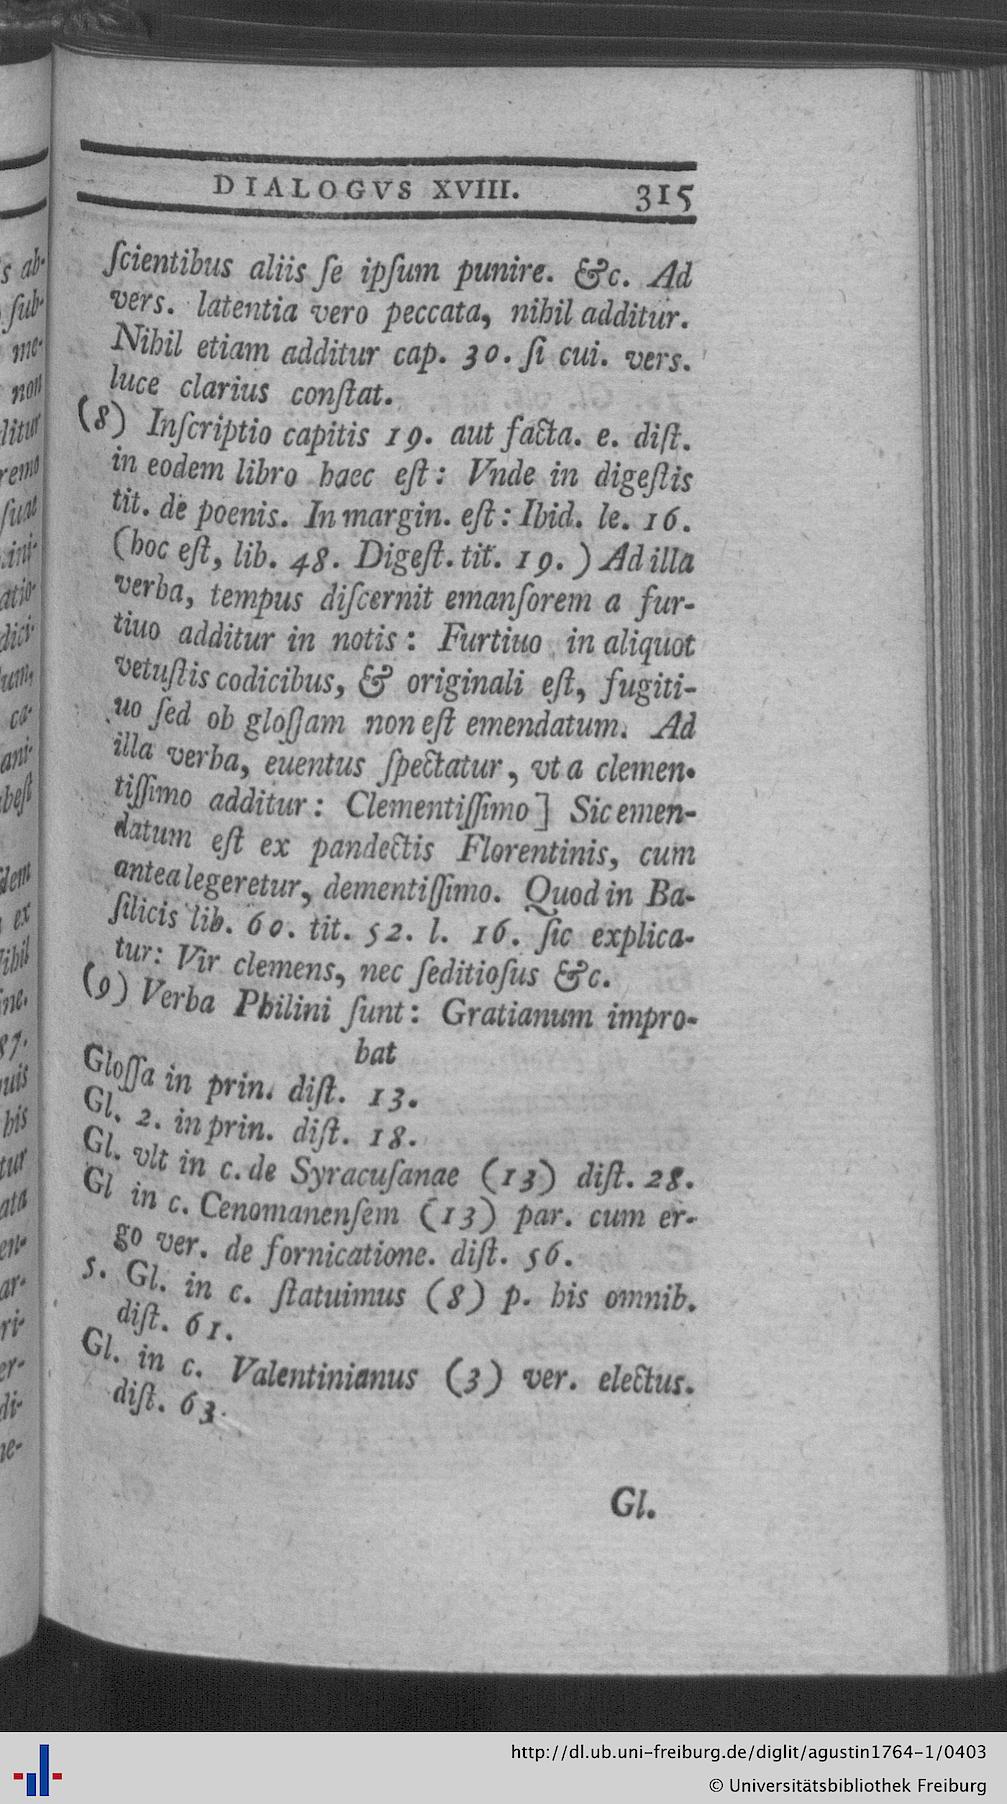 DIALOGVS XVIII. 315
ſcientibus aliis ſe ipſum punire. &c. Ad
vers. latentia vero peccata, nihil additur.
Nihil etiam additur cap. 30. ſi cui. vers.
luce clarius conſtat.
(8) Inſcriptio capitis 19. aut facta. e. diſt.
in eodem libro haec eſt: Vnde in digeſtis
tit. de poenis. In margin. eſt: Ibid. le. 16.
(hoc eſt, lib. 48. Digeſt. tit. 19.) Ad illa
verba, tempus diſcernit emanſorem a fur-
tiuo additur in notis: Furtiuo in aliquot
vetuſtis codicibus, & originali eſt, fugiti-
uo ſed ob gloſſam non eſt emendatum. Ad
illa verba, euentus ſpectatur, vt a clemen-
tiſſimo additur: Clementiſſimo] Sic emen-
datum eſt ex pandectis Florentinis, cum
antea legeretur, dementiſſimo. Quod in Ba-
ſilicis lib. 60. tit. 52. l. 16. ſic explica-
tur: Vir clemens, nec ſeditioſus &c.
(9) Verba Philini ſunt: Gratianum impro-
bat
Gloſſa in prin. diſt. 13.
Gl. 2. in prin. diſt. 18.
Gl. vlt in c. de Syracuſanae (13) diſt. 28.
Gl in c. Cenomanenſem (13) par. cum er-
go ver. de fornicatione. diſt. 56.
5. Gl. in c. ſtatuimus (8) p. his omnib.
diſt. 61.
Gl. in c. Valentinianus (3) ver. electus.
diſt. 63.
Gl.
s ab-
ſub-
me-
non
ditur
remo
ſuae
ini-
atio-
dici-
um,
ca-
ani-
beſt
dem
ex
Nihil
ne.
87.
uis
his
tur
ata
en-
ar-
ri-
er-
di-
ne-
http://dl.ub.uni-freiburg.de/diglit/agustin1764-1/0403
© Universitätsbibliothek Freiburg